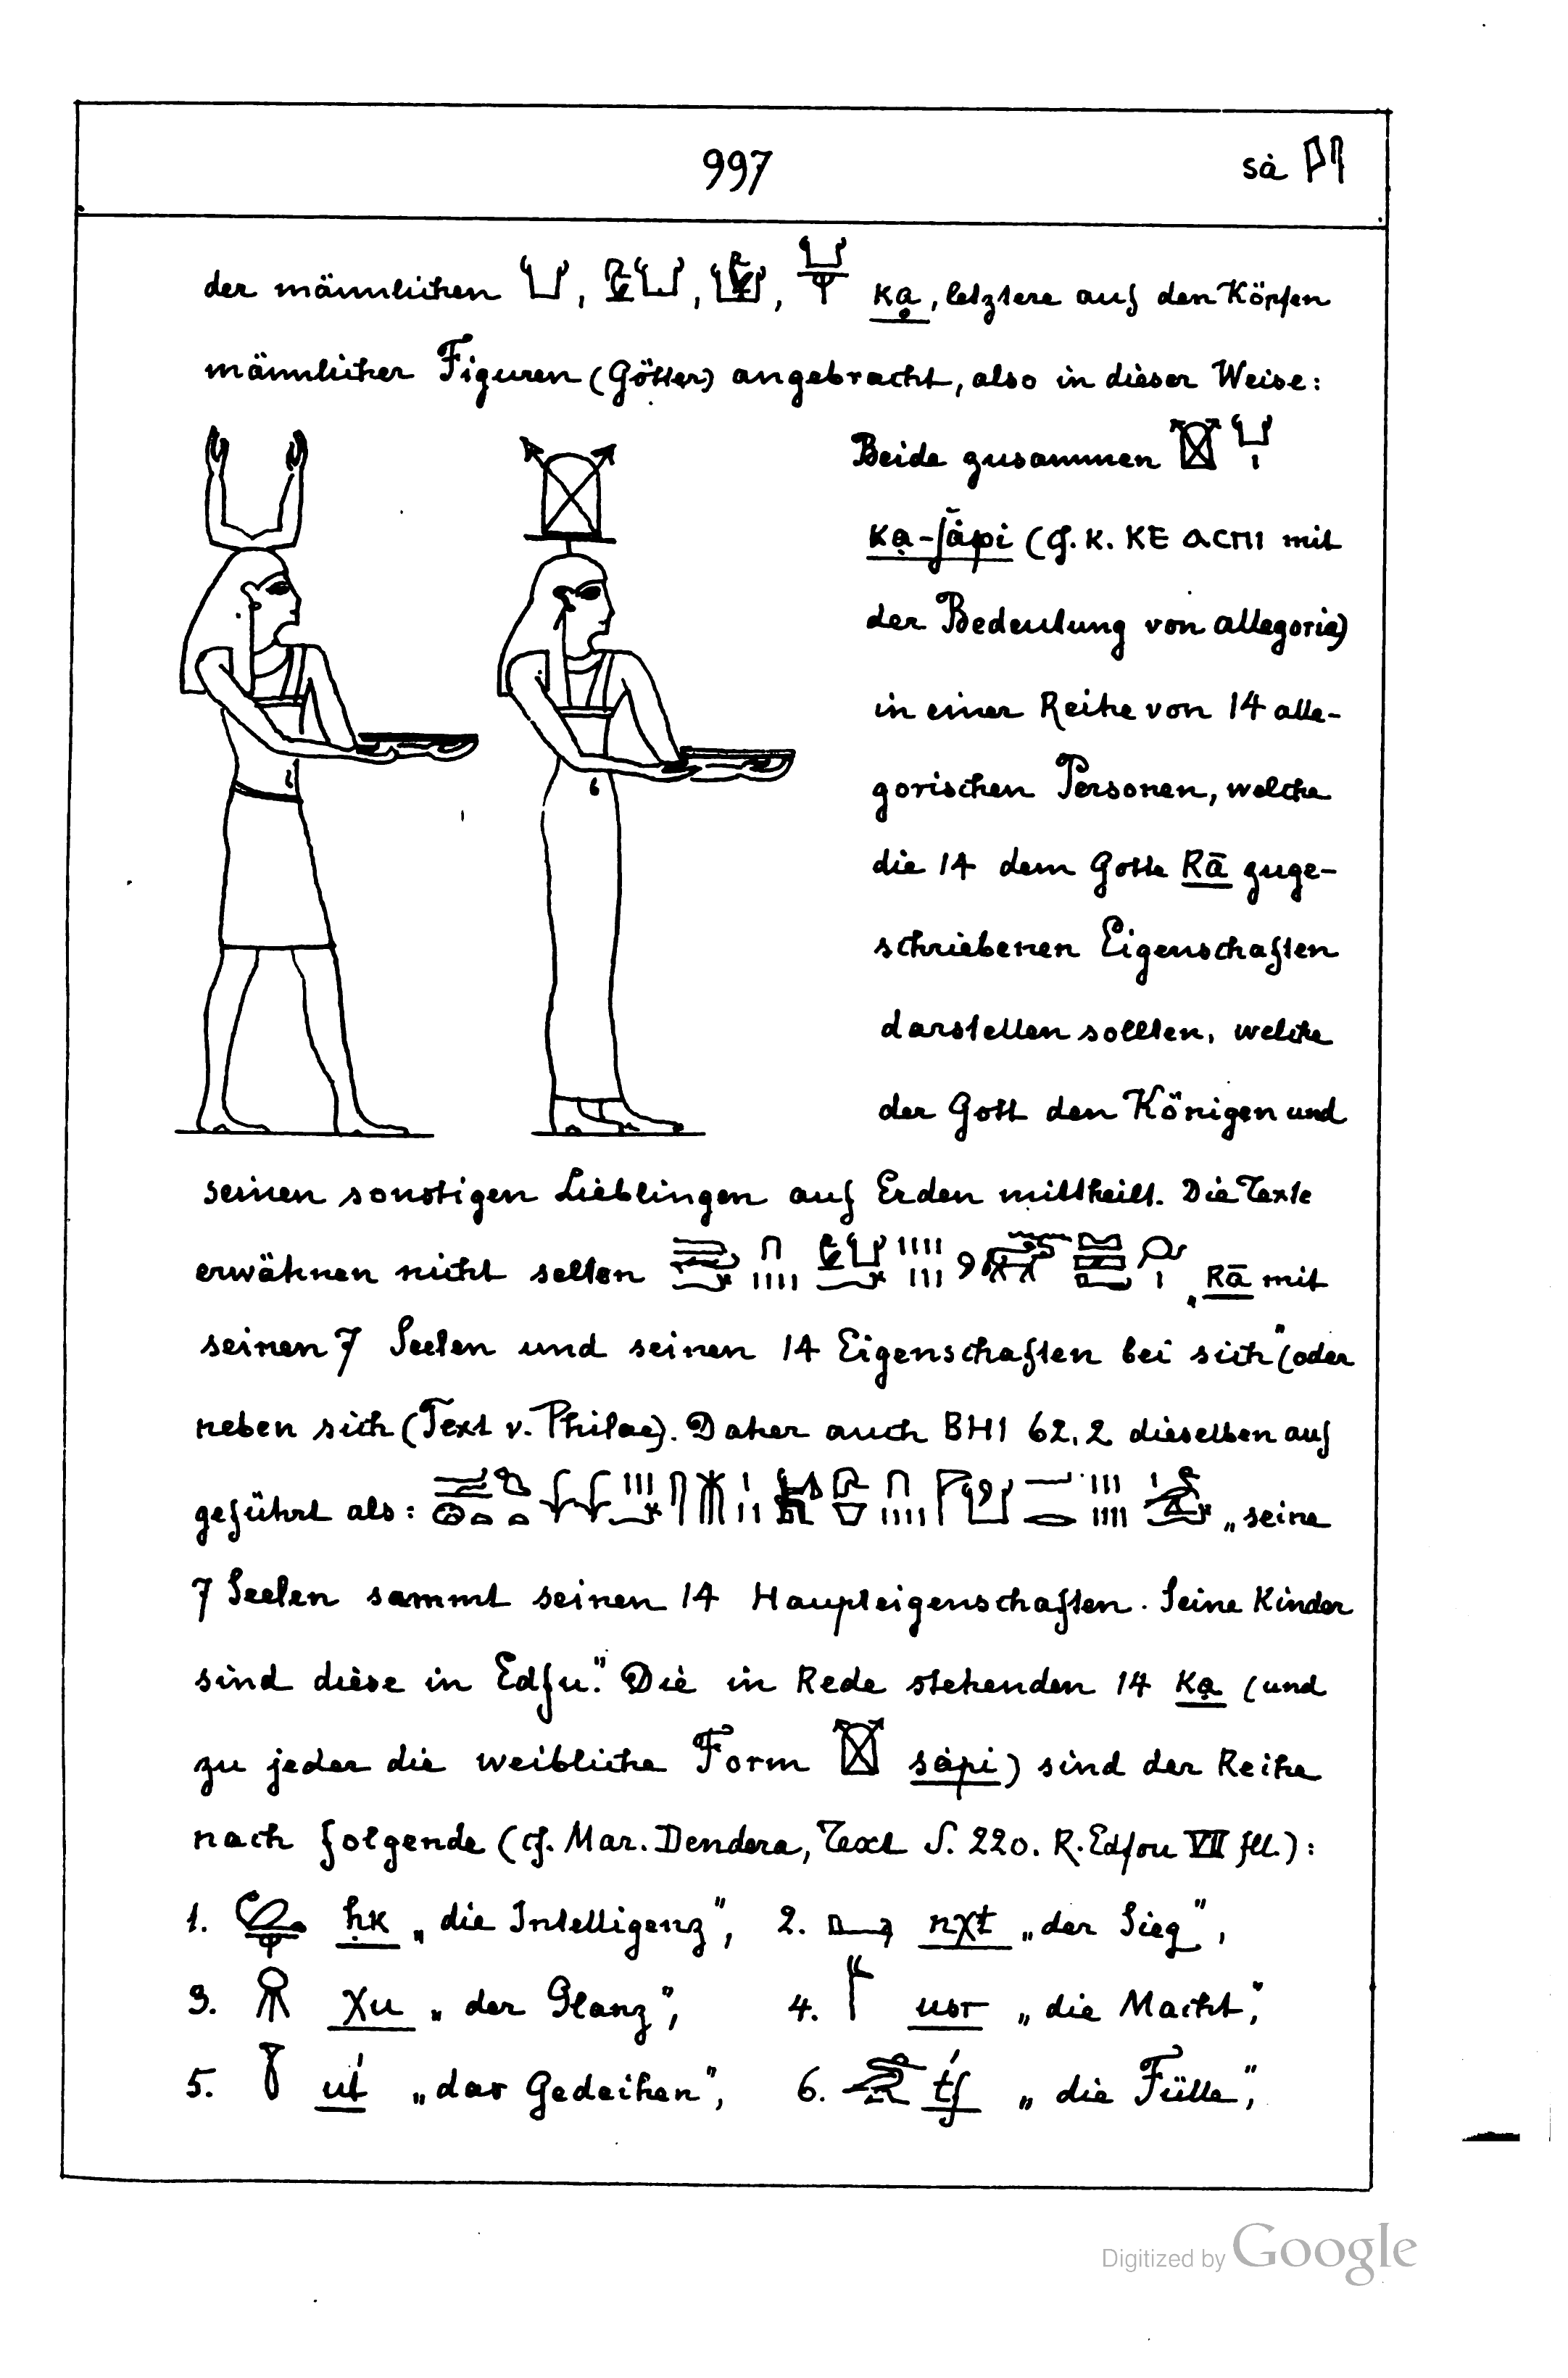 997 sȧ
der männlichen 𓂓, 𓂓, 𓂓, 𓂓 ḳa, letztere auf den Köpfen
männlicher Figuren (Götter) angebracht, also in dieser Weise:
Beide zusammen
ḳa-šȧpi (cf. K. ⲔⲈ ⲁⲥⲡⲓ mit
der Bedeutung von allegoria)
in einer Reihe von 14 alle-
gorischen Personen, welche
die 14 dem Gotte Rā zuge-
schriebenen Eigenschaften
darstellen sollten, welche
der Gott den Königen und
seinen sonstigen Lieblingen auf Erden mittheilt. Die Texte
erwähnen nicht selten „Rā mit
seinen 7 Seelen und seinen 14 Eigenschaften bei sich" (oder
neben sich (Text v. Philae). Daher auch BHI 62,2 dieselben auf
geführt als: „seine
7 Seelen sammt seinen 14 Haupteigenschaften. Seine Kinder
sind diese in Edfu." Die in Rede stehenden 14 Ka (und
zu jeder die weibliche Form sȧpi) sind der Reihe
nach folgende (cf. Mar. Dendera, Text S. 220. R. Edfou VII fll.):
1. ḥk „die Intelligenz", 2. nχt „der Sieg",
3. χu „der Glanz", 4. usr „die Macht",
5. ut́ „das Gedeihen", 6. t́f „die Fülle",
Digitized by Google